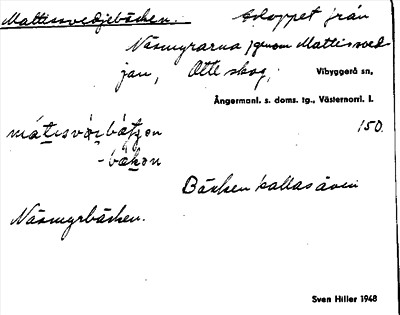 Mattissvedjebäcken. Avloppet från
Näsmyrarna genom Mattissved-
jan, Otte skog, Vibyggerå sn,
Ångermanl. s. doms. tg., Västernorrl. l.
mátɩsvä̀ɩbä́tʃen 150.
-bä́kɔn
Bäcken kallas även
Näsmyrbäcken.
Sven Hiller 1948